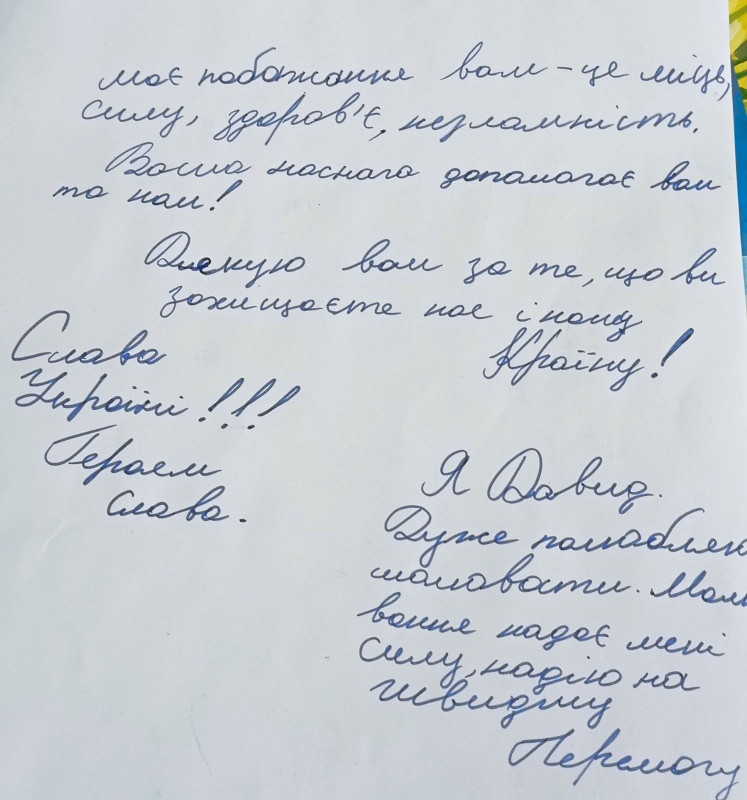 моє побажання вам – це міць,
силу, здоров'є, незламність.
Ваша наснага допомагає вам
та нам!
Дякую вам за те, що ви
захищаєте нас і нашу
Країну!
Слава
Україні!!!
Героям
Слава.
Я Давид.
Дуже полюбляю
малювати. Малю
вання надає мені
силу, надію на
швидку
Перемогу